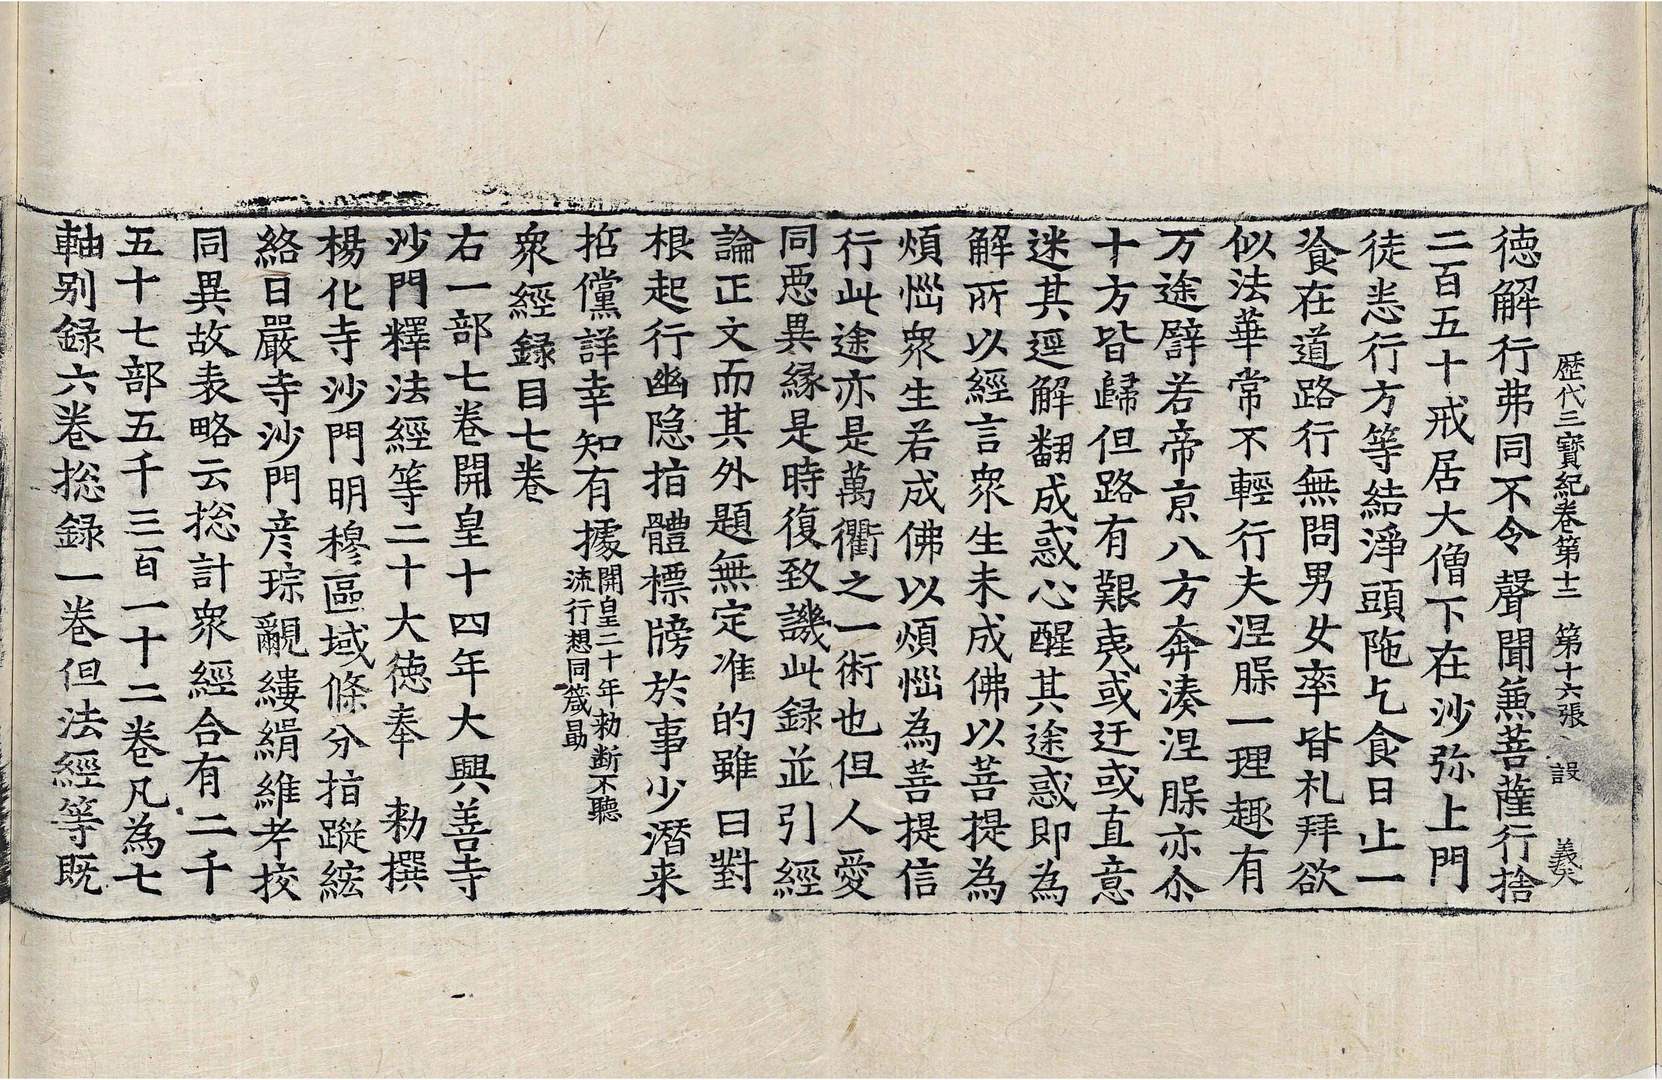 歷代三寶紀卷第十二　第十六張　設　義癸
德解行弗同不令聲聞蕪菩薩行捨
二百五十戒居大僧下在沙弥上門
徒悉行方等結淨頭陁乞食日止一
飡在道路行無問男女率皆礼拜欲
似法華常不輕行夫涅脲一理趣有
万途譬若帝京八方奔湊涅脲亦尒
十方皆歸但路有艱夷或迂或直意
迷其逕解翻成惑心醒其途惑即為
解所以經言衆生未成佛以菩提為
煩惱衆生若成佛以煩惱為菩提信
行此途亦是萬衢之一術也但人愛
同惡異緣是時復致譏此録並引經
論正文而其外題無定准的雖曰對
根起行幽隐指體標牓於事少潛来
招儻詳幸知有據開皇二十年勑断不聽
流行想同箴勗
衆經録目七卷
右一部七卷開皇十四年大興善寺
沙門釋法經等二十大德奉　勑撰
楊化寺沙門明穆區域條分指蹤絃
絡日嚴寺沙門彦琮覼縷緝維考挍
同異故表略云揔計衆經合有二千
五十七部五千三百一十二卷凡為七
軸别録六卷揔録一卷但法經等既